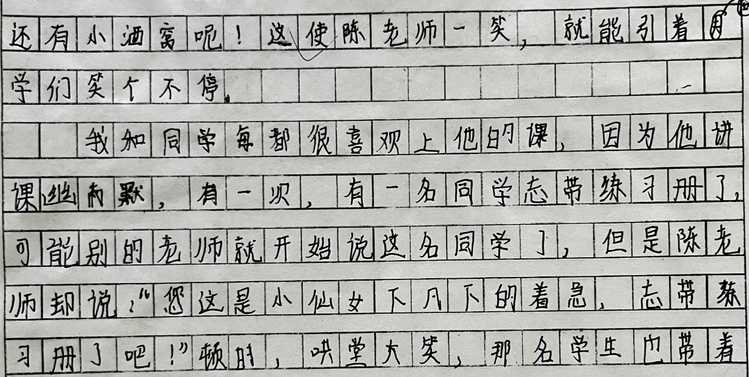 还有小酒窝呢！这使陈老师一笑，就能引着同
学们笑个不停。
我和同学每都很喜欢上他的课，因为他讲
课幽而默，有一次，有一名同学志带练习册了，
可能别的老师就开始说这名同学了，但是陈老
师却说：“您这是小仙女下凡下的着急，志带练
习册了吧！”顿时，哄堂大笑，那名学生也带着